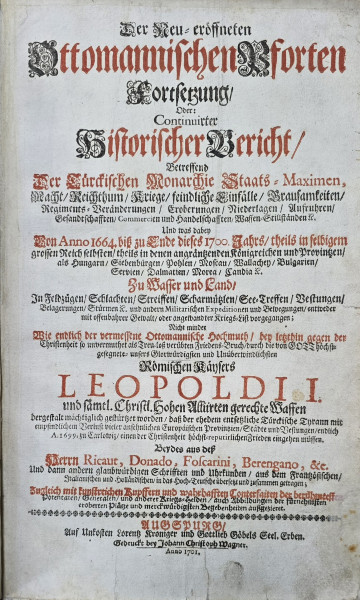 Der Neu-eröffneten
Ottomannischen Pforten
Fortsetzung/
Oder:
Continuirter
Historischer Bericht/
Betreffend
Der Türckischen Monarchie Staats-Maximen,
Macht/ Reichthum/ Kriege/ feindliche Einfälle/ Grausamkeiten/
Regiments-Veränderungen/ Eroberungen/ Niederlagen/ Aufruhren/
Gesandtschafften/ Commercien und Handelschafften/ Waffen-Stillständen &c.
Und was dabey
Von Anno 1664. biß zu Ende dieses 1700. Jahrs/ theils in selbigem
grossen Reich selbsten/ theils in denen angräntzenden Königreichen und Provintzen/
als Hungarn/ Siebenbürgen/ Pohlen/ Moscau/ Wallachey/ Bulgarien/
Servien/ Dalmatien/ Morea/ Candia &c.
Zu Wasser und Land/
In Feldzügen/ Schlachten/ Streiffen/ Scharmützlen/ See-Treffen/ Vestungen/
Belägerungen/ Stürmen &c. und andern Militarischen Expeditionen und Bewegungen/ entweder
mit offenbahrer Gewalt/ oder angewandter Kriegs-List vorgegangen;
Nicht minder
Wie endlich der vermessene Ottomannische Hochmuth/ bey letzthin gegen der
Christenheit so unvermuthet als Treu-loß verübten Friedens-Bruch durch die von GOTT höchst-
gesegnete unsers Glorwürdigsten und Unüberwindlichsten
Römischen Käysers
LEOPOLDI I.
und sämtl. Christl. Hohen Alliirten gerechte Waffen
dergestalt mächtiglich gestürtzet worden/ daß der ehedem entsetzliche Türckische Tyrann mit
empfindlichem Verlust vieler ansehnlichen Europäischen Provintzien/ Städte und Vestungen/ endlich
A. 1699. zu Carlowiz/ einen der Christenheit höchst-reputirlichen Frieden eingehen müssen.
Beydes aus deß
Herrn Ricaut, Donado, Foscarini, Berengano, &c.
Und dann andern glaubwürdigen Schrifften und Uhrkunden/ aus dem Frantzösischen/
Italiänischen und Holländischen/ in das Hoch-Teutsche übersetzt und zusammen getragen;
Zugleich mit künstlichen Kupffern und wahrhafften Conterfaiten der berühmtesten
Potentaten/ Generalen/ und anderer Kriegs-Helden/ auch Abbildungen der fürnehmsten
eroberten Plätze und merckwürdigsten Begebenheiten außgezieret.
AUGSPURG/
Auf Unkosten Lorentz Kroniger und Gottlieb Göbels Seel. Erben.
Gedruckt bey Johann Christoph Wagner.
Anno 1701.